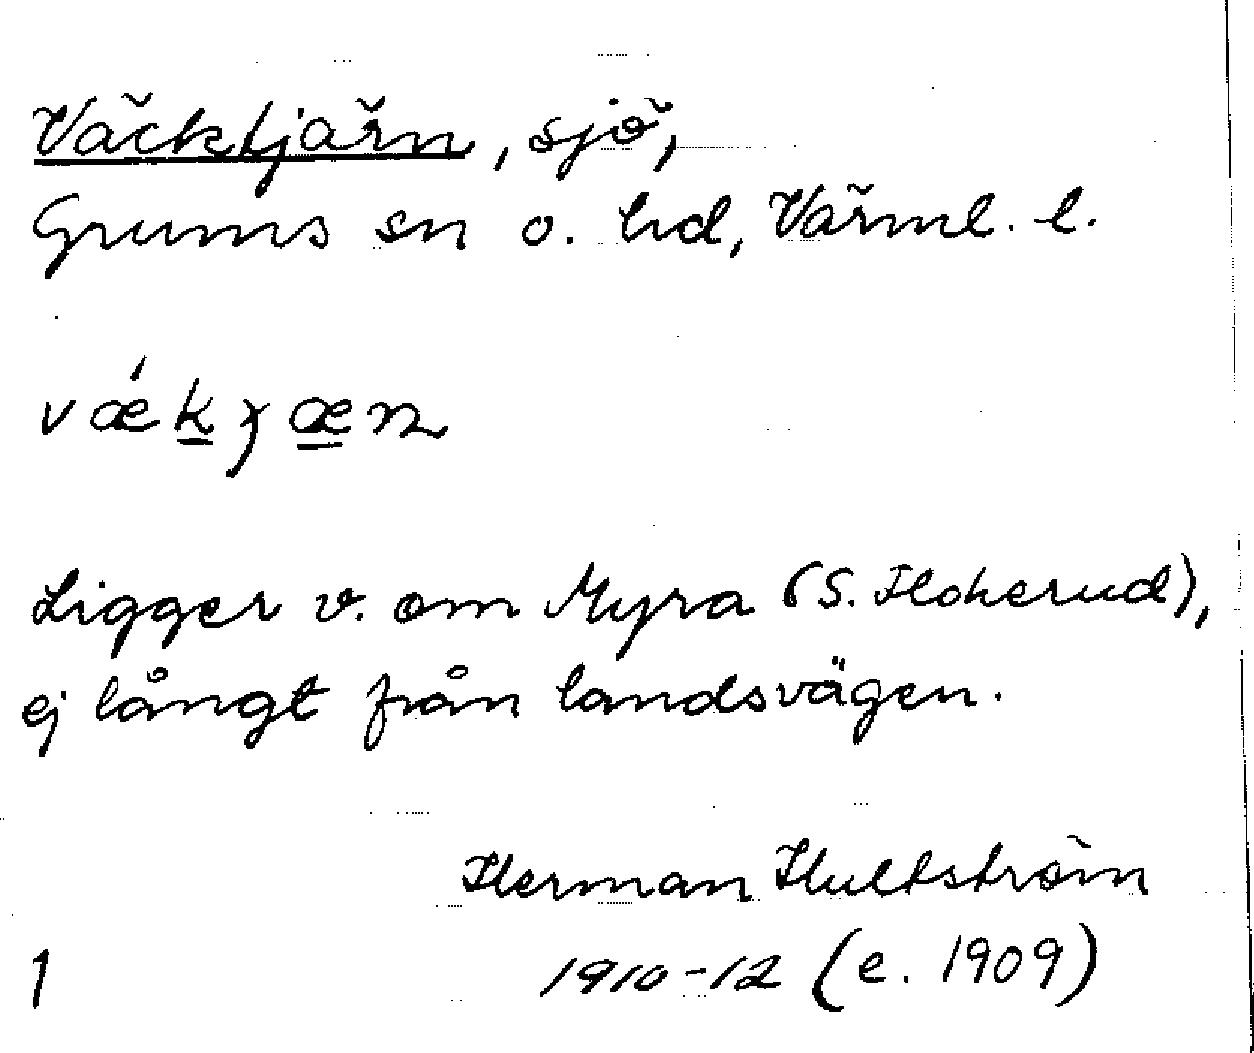 Väcktjärn, sjö,
Grums sn o. hd, Värml. l.
Ligger v. om Myra (S. Hokerud),
ej långt från landsvägen.
Herman Hultström
1910-12 (e. 1909)
1